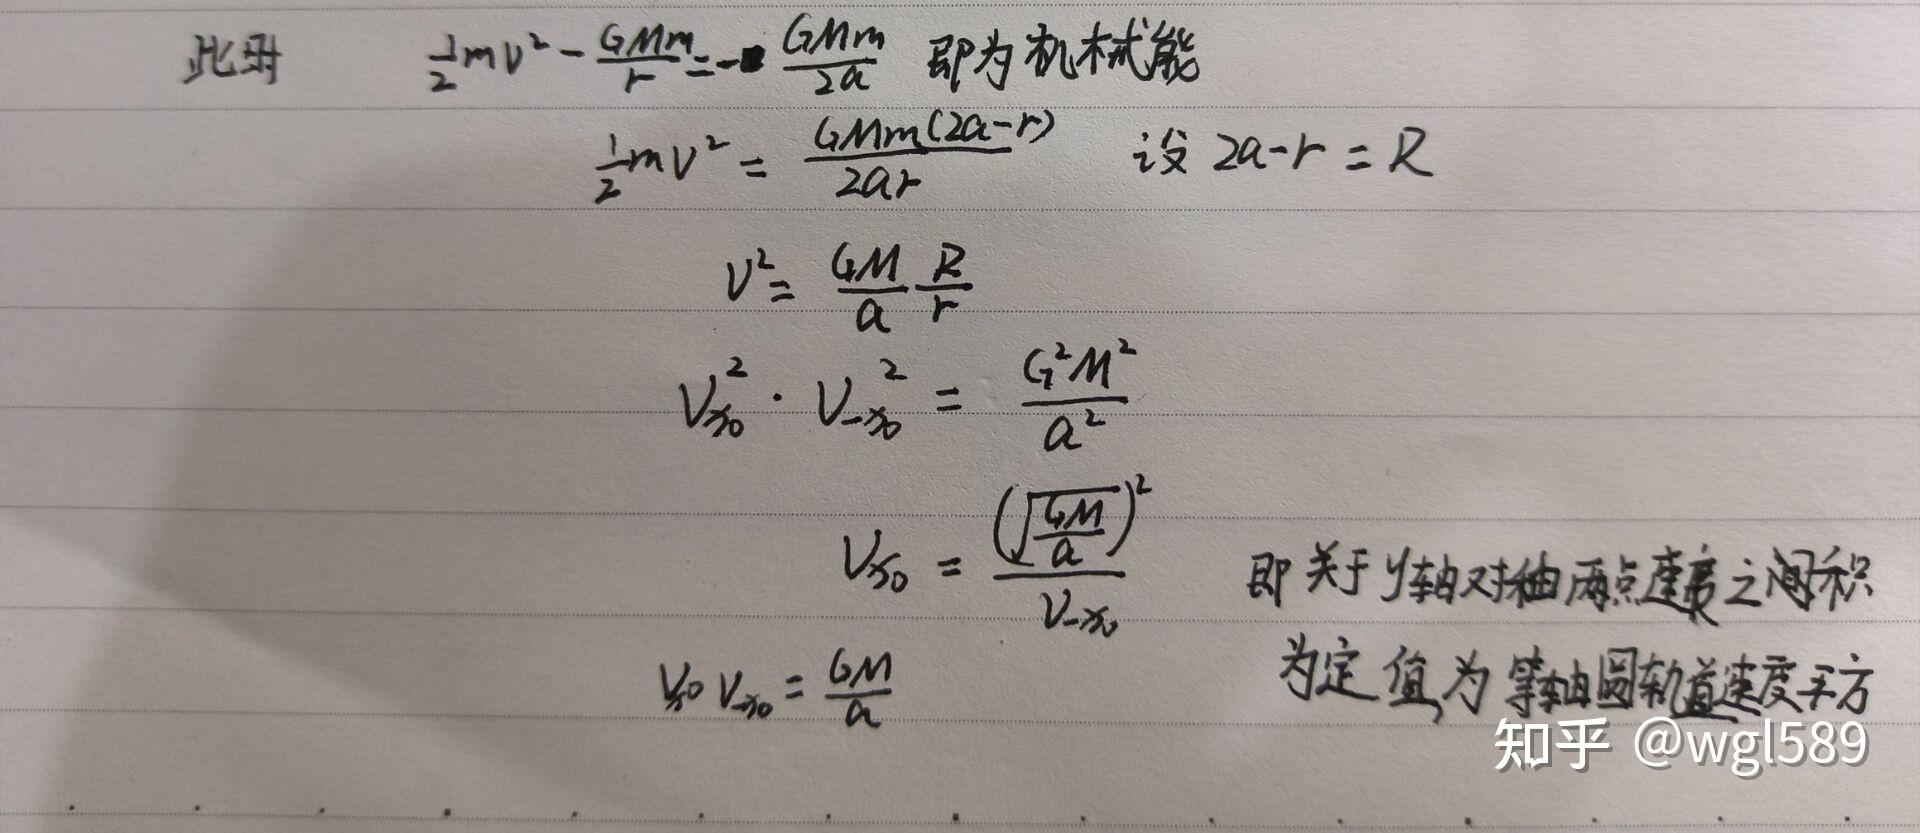 此时 ½mv² - GMm/r = - GMm/2a 即为机械能
½mv² = GMm(2a-r)/2ar 设 2a-r = R
v² = GM/a R/r
Vx₀² · V-x₀² = G²M²/a²
Vx₀ = (√(GM/a))²/V-x₀
即关于y轴对称两点速度之间积
Vx₀ V-x₀ = GM/a
为定值,为等轴圆轨道速度平方
知乎 @wgl589